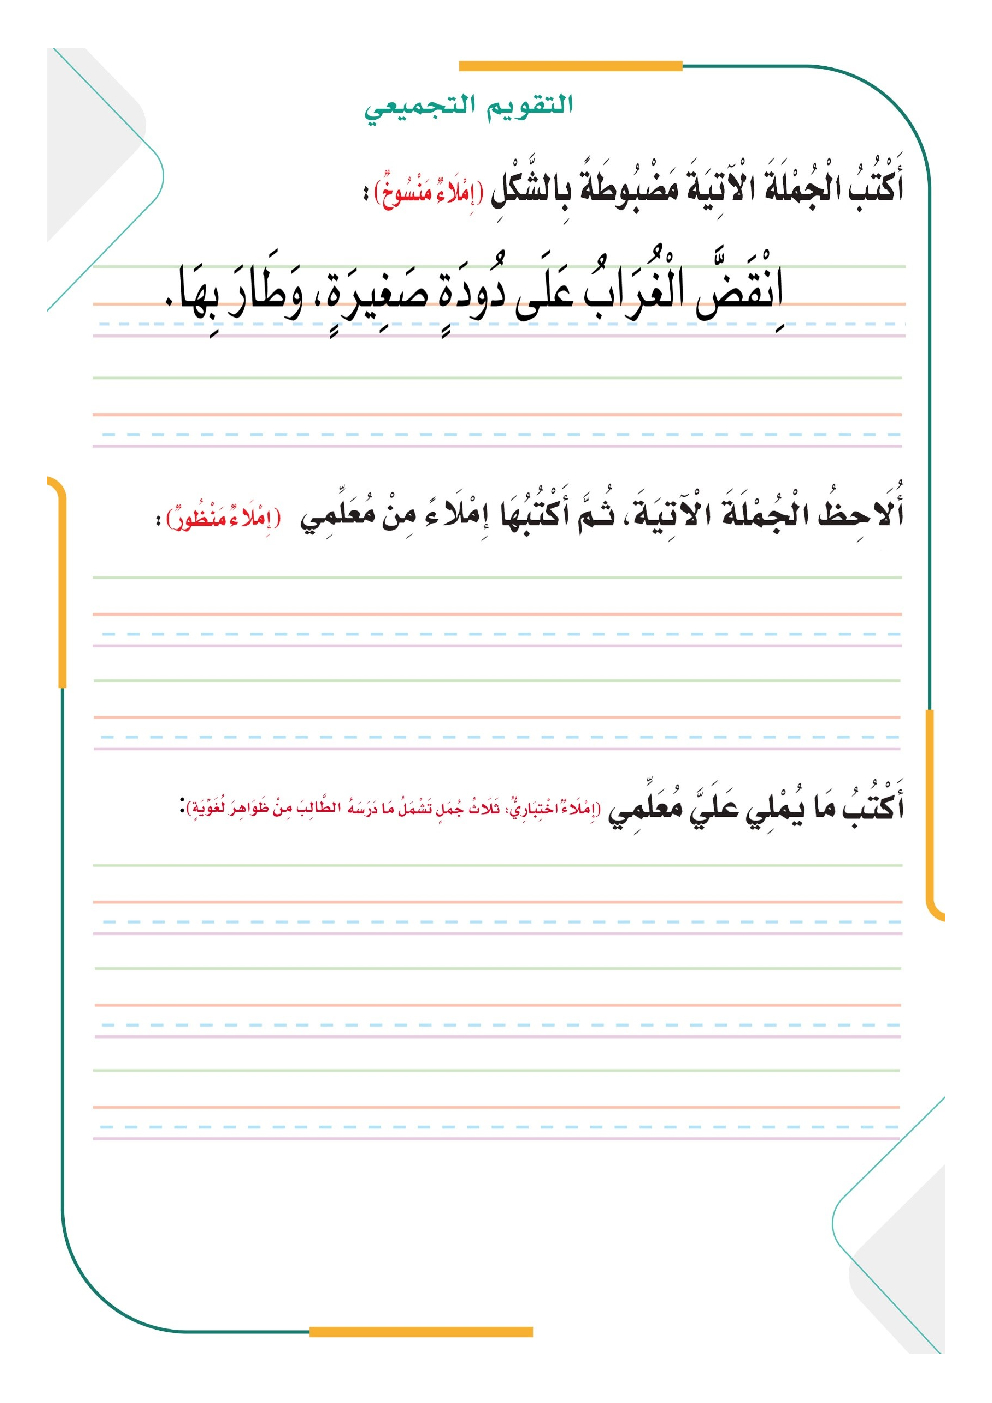 التقويم التجميعي
أَكْتُبُ الْجُمْلَةَ الْآتِيَةَ مَضْبُوطَةً بِالشَّكْلِ (إِمْلَاءٌ مَنْسُوخٌ) :
اِنْقَضَّ الْغُرَابُ عَلَى دُودَةٍ صَغِيرَةٍ، وَطَارَ بِهَا.
أُلَاحِظُ الْجُمْلَةَ الْآتِيَةَ، ثُمَّ أَكْتُبُهَا إِمْلَاءً مِنْ مُعَلِّمِي (إِمْلَاءٌ مَنْظُورٌ) :
أَكْتُبُ مَا يُمْلِي عَلَيَّ مُعَلِّمِي (إِمْلَاءٌ اخْتِبَارِيٌّ: ثَلَاثُ جُمَلٍ تَشْمَلُ مَا دَرَسَهُ الطَّالِبَ مِنْ ظَوَاهِرَ لُغَوِيَةٍ):